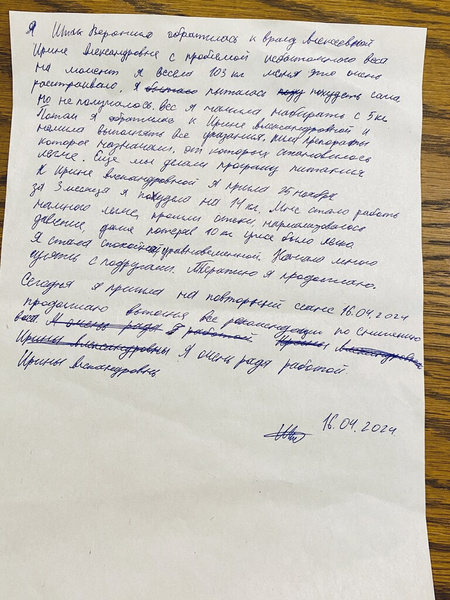 Я Штых Вероника обратилась к врачу Алексеевной
Ирине Александровне с проблемой недостаточного веса
на момент я весела 103 кг меня это очень
растраивало, я пыталась похудеть сама
но не получалось, вес я начила набирать с 5 кг
Потом я обратилась к Ирине Александровной и
начила выполнять все указания. Пила препораты
которое назначали, от которых становилось
легче. Еще мы делали програму питания
К Ирине Александровной я пришла 25 ноября
за 3 месяца я похудела на 14 кг. Мне стало работь
намного легче, прошли отеки, нармализовалося
давение, даже потеряв 10 кг уже было легко
Я стала спокойной уравновешенной. Начала много
гулять с подругами. Терапию я продолжаю.
Сегодня я пришла на повторный сеанс 16.04.2024
продолжаю выполня все рекомендации по снижению
веса Я очень рада работой Ирины Александровны
Ирины Александровны Я очень рада работой.
Ирины Александровны
16.04.2024